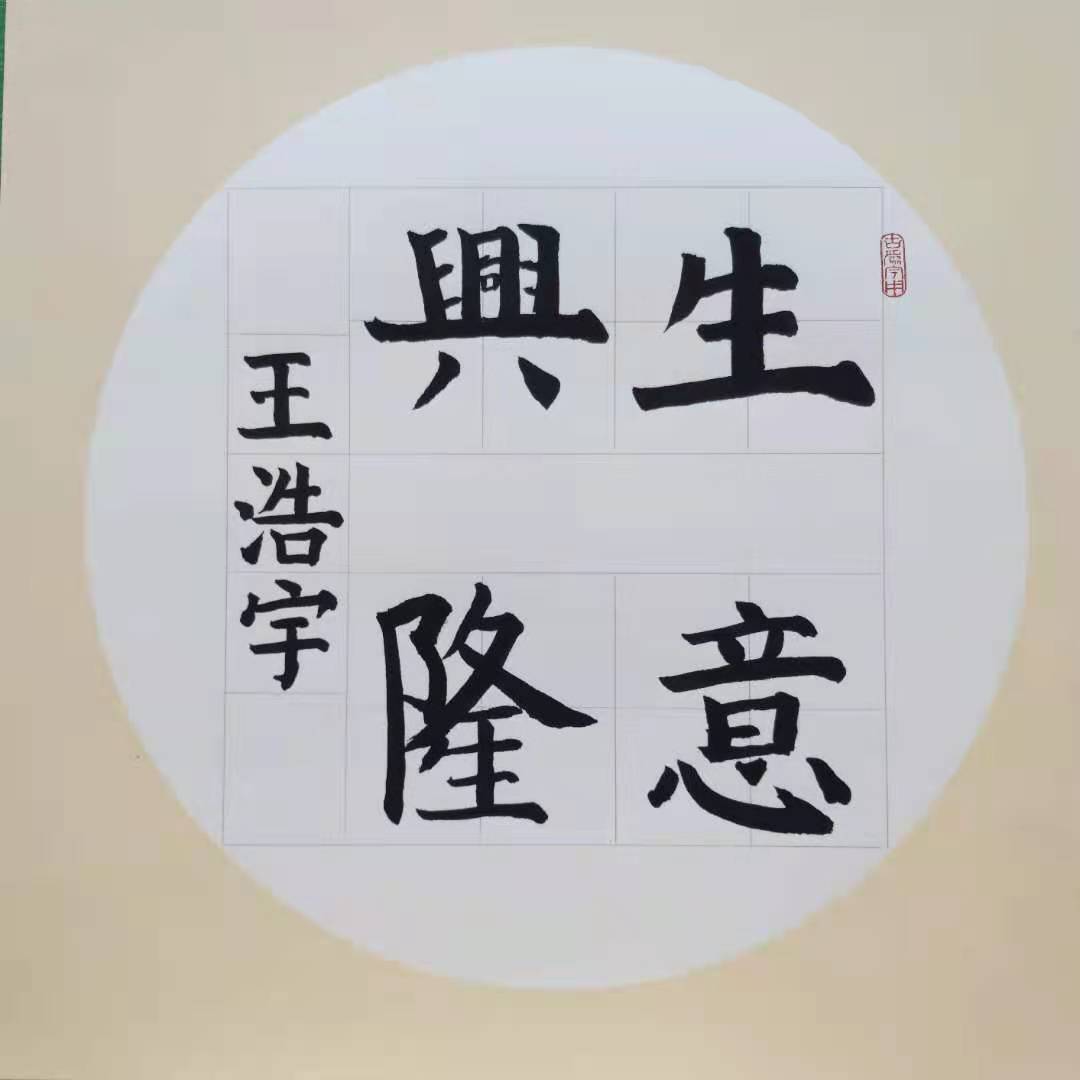 生意
興隆
王浩宇